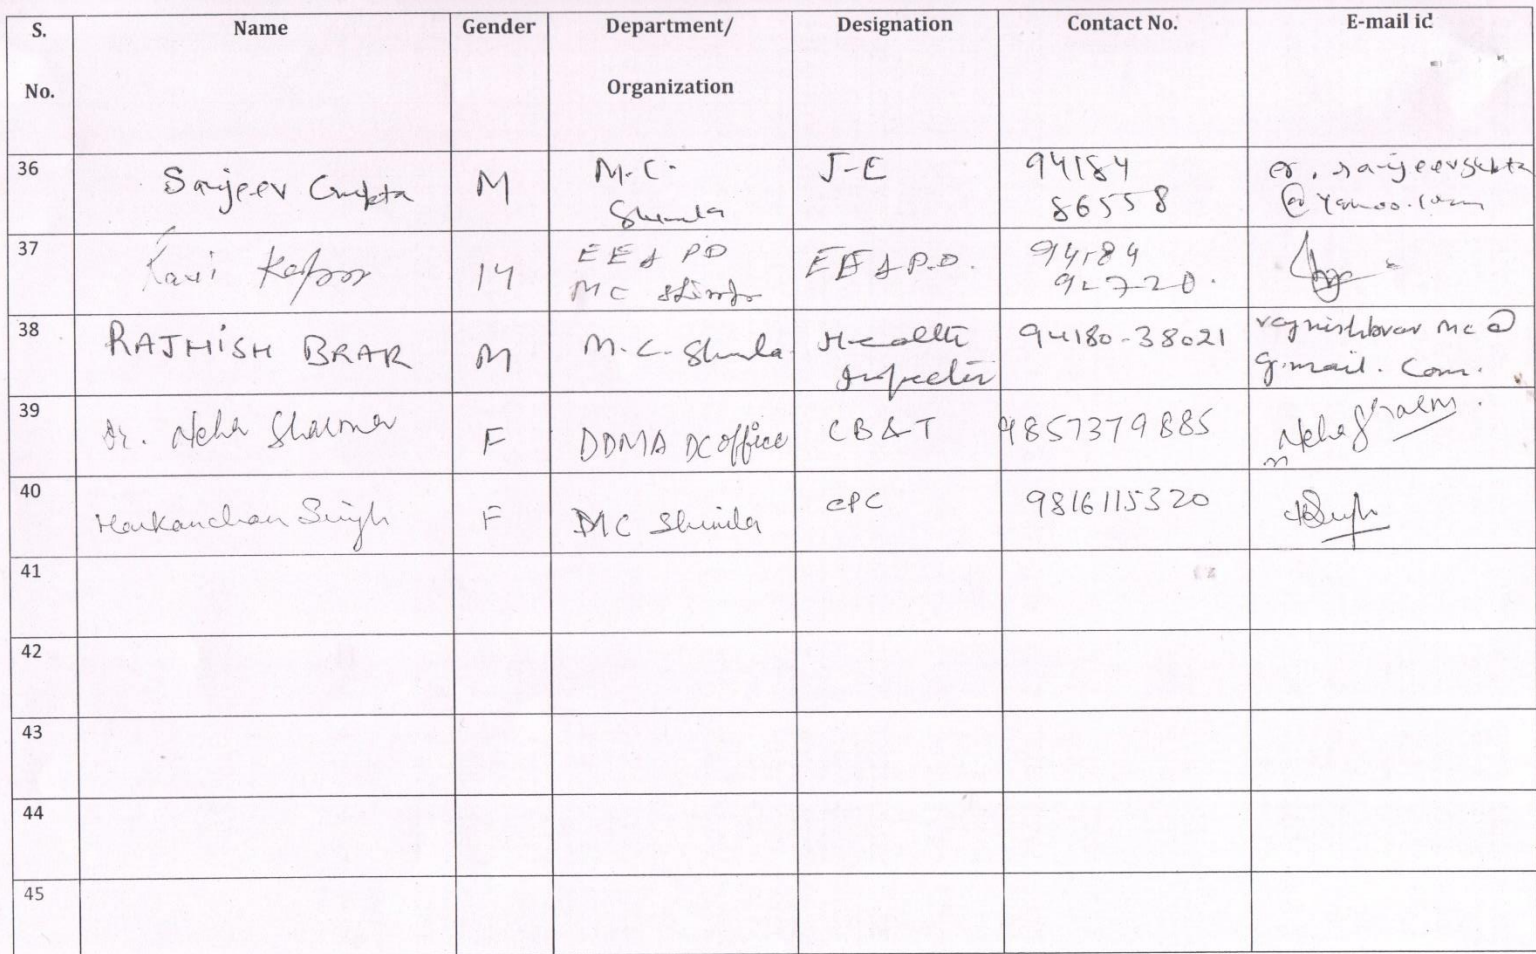 S. No. Name Gender Department/ Organization Designation Contact No. E-mail id
36 Sanjeev Gupta M M.C. Shimla J-E 94184 86558 er.sanjeevgupta @yahoo.com
37 Kapoor M MC Shimla 94184 92720.
38 RAJNISH BRAR M M.C. Shimla Health Inspector 94180-38021 rajnishbrar mc@ gmail.com.
39 Dr. Neha Sharma F DDMA DC office CB&T 9857379885 Neha Sharma
40 Harkanchan Singh F MC Shimla CPC 9816115320
41
42
43
44
45